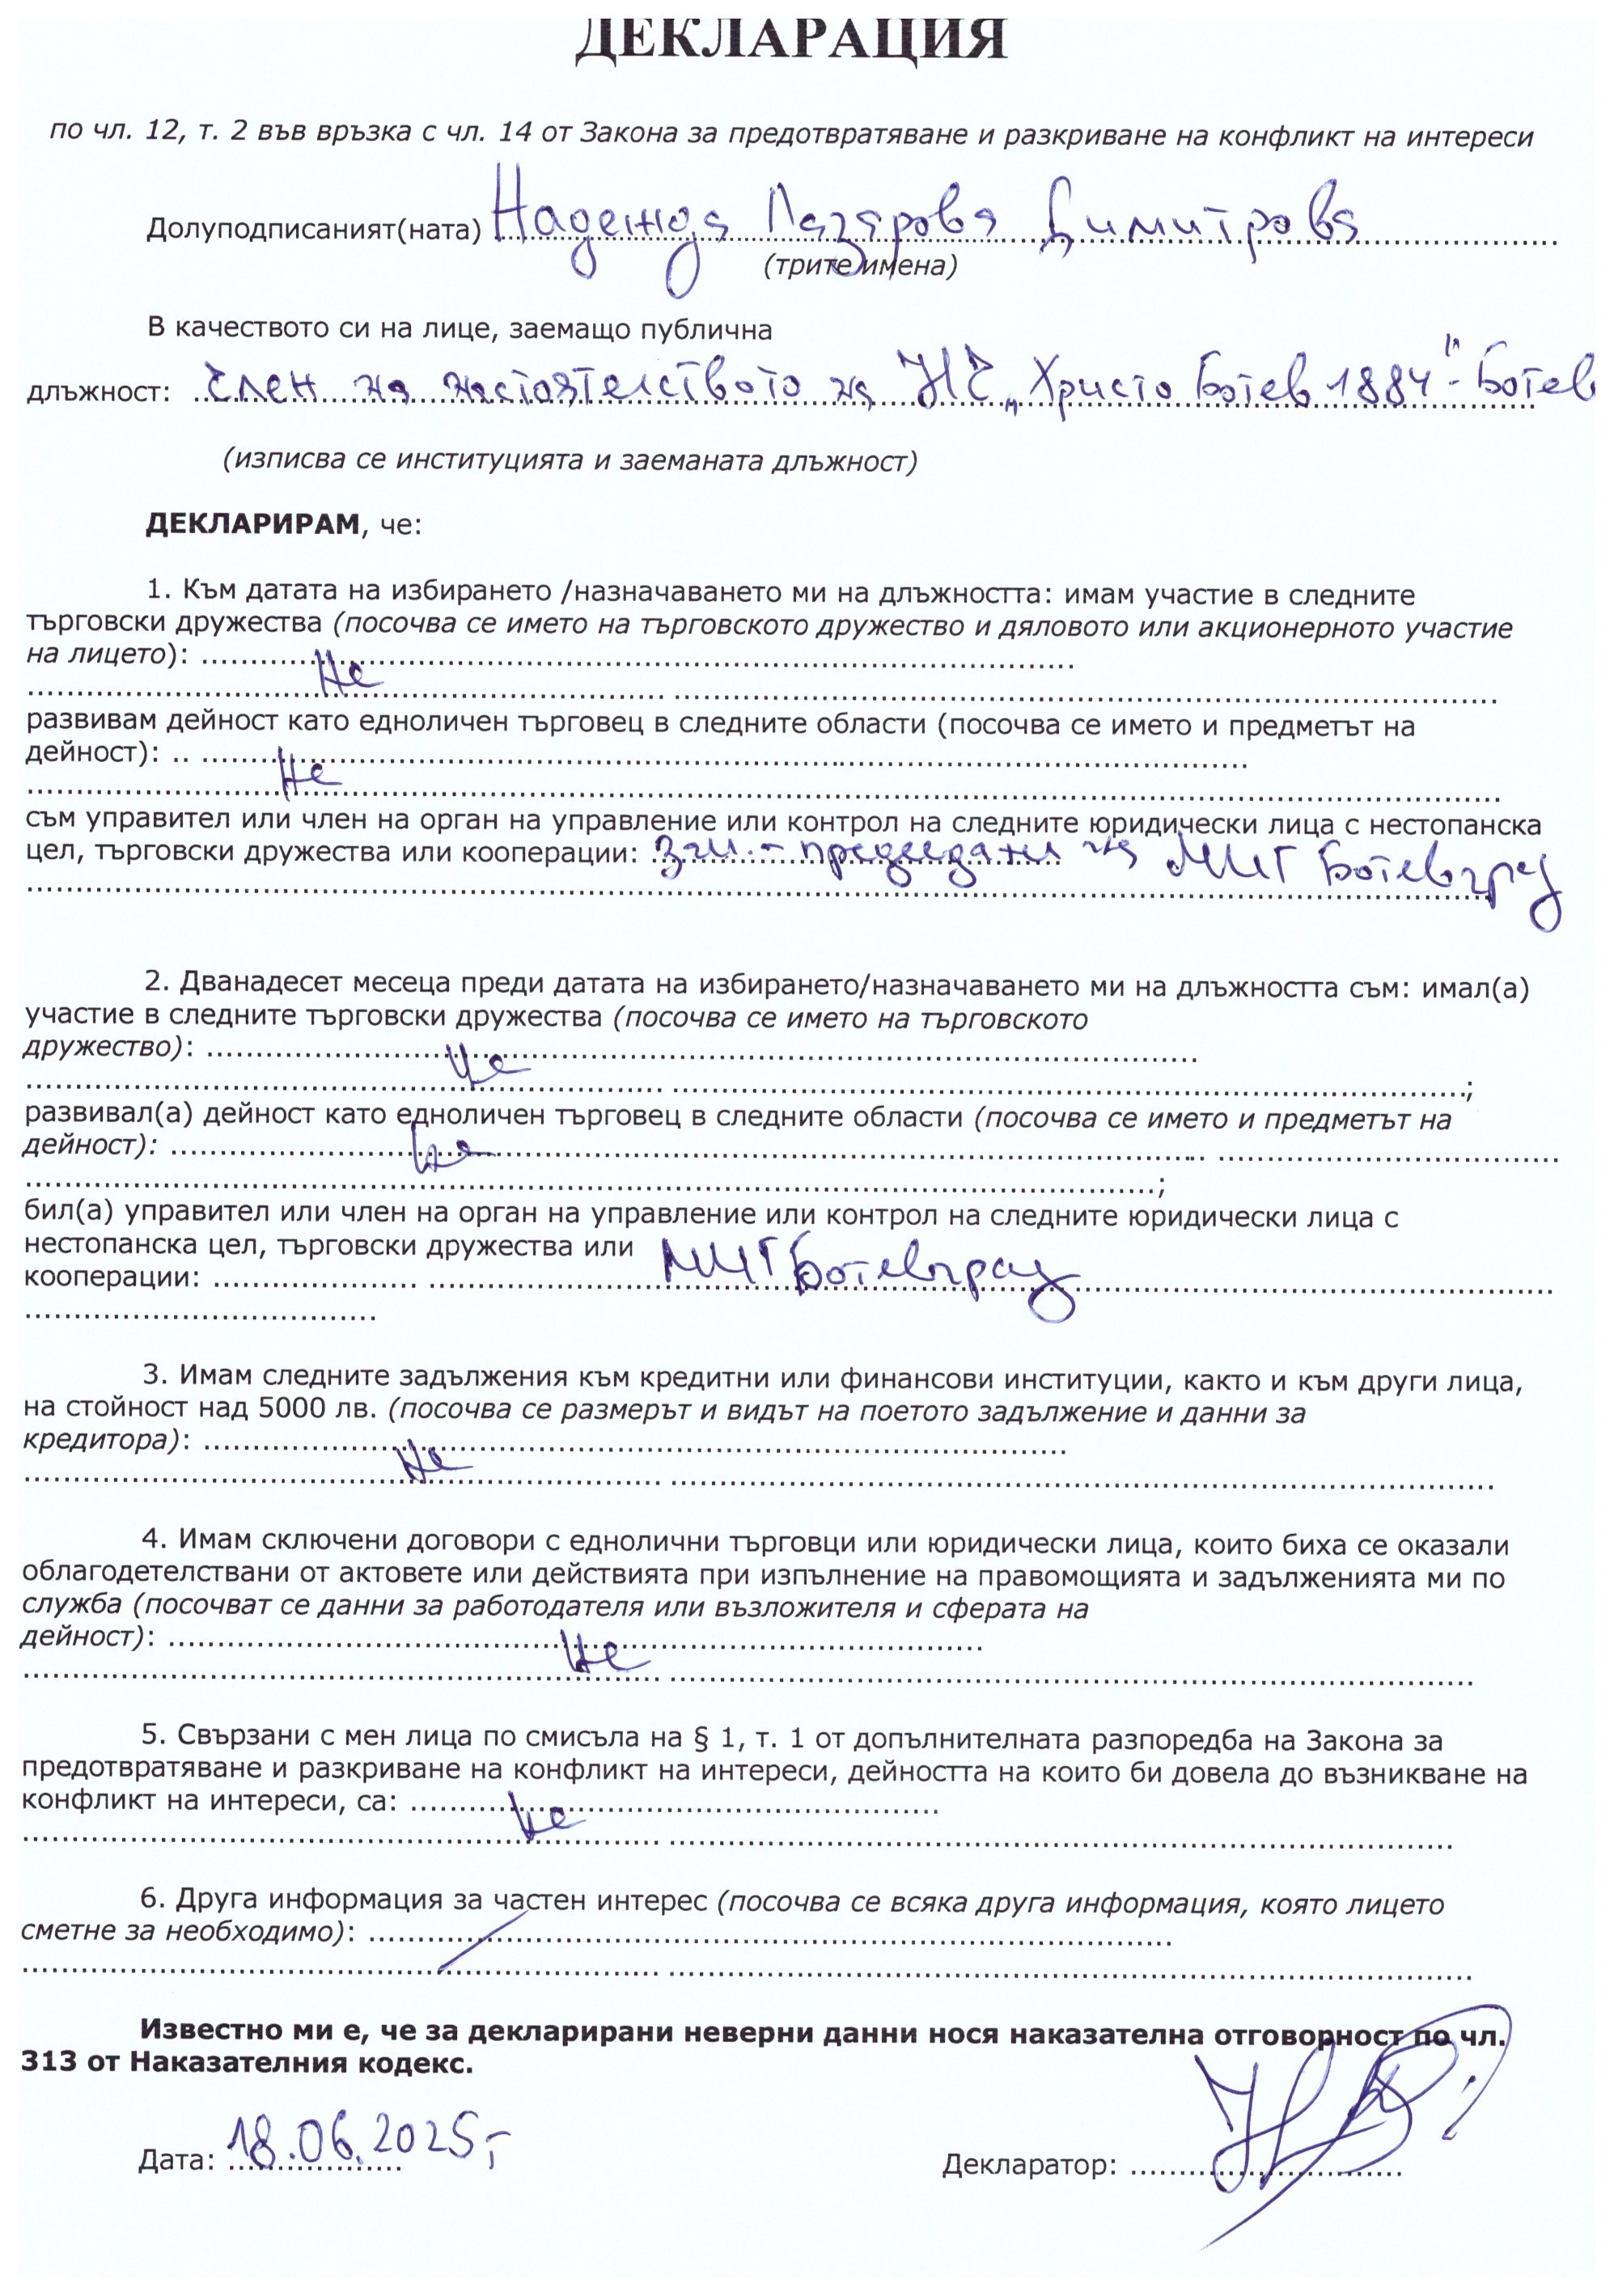 ДЕКЛАРАЦИЯ
по чл. 12, т. 2 във връзка с чл. 14 от Закона за предотвратяване и разкриване на конфликт на интереси
Долуподписаният(ната) Надежда Лазарова Димитрова
(трите имена)
В качеството си на лице, заемащо публична
длъжност: член на настоятелството на НЧ „Христо Ботев 1884" - Ботев
(изписва се институцията и заеманата длъжност)
ДЕКЛАРИРАМ, че:
1. Към датата на избирането /назначаването ми на длъжността: имам участие в следните
търговски дружества (посочва се името на търговското дружество и дяловото или акционерното участие
на лицето): ..........
Не
развивам дейност като едноличен търговец в следните области (посочва се името и предметът на
дейност): .. ..........
Не
съм управител или член на орган на управление или контрол на следните юридически лица с нестопанска
цел, търговски дружества или кооперации: зам. - председател на МИГ Ботевград
2. Дванадесет месеца преди датата на избирането/назначаването ми на длъжността съм: имал(а)
участие в следните търговски дружества (посочва се името на търговското
дружество): ..........
Не
..........;
развивал(а) дейност като едноличен търговец в следните области (посочва се името и предметът на
дейност): .......... Не
..........;
бил(а) управител или член на орган на управление или контрол на следните юридически лица с
нестопанска цел, търговски дружества или
кооперации: .......... МИГ Ботевград
3. Имам следните задължения към кредитни или финансови институции, както и към други лица,
на стойност над 5000 лв. (посочва се размерът и видът на поетото задължение и данни за
кредитора): ..........
Не
4. Имам сключени договори с еднолични търговци или юридически лица, които биха се оказали
облагодетелствани от актовете или действията при изпълнение на правомощията и задълженията ми по
служба (посочват се данни за работодателя или възложителя и сферата на
дейност): ..........
Не
5. Свързани с мен лица по смисъла на § 1, т. 1 от допълнителната разпоредба на Закона за
предотвратяване и разкриване на конфликт на интереси, дейността на които би довела до възникване на
конфликт на интереси, са: ..........
Не
6. Друга информация за частен интерес (посочва се всяка друга информация, която лицето
сметне за необходимо): ..........
Известно ми е, че за декларирани неверни данни нося наказателна отговорност по чл.
313 от Наказателния кодекс.
Дата: 18.06.2025г
Декларатор: ..........